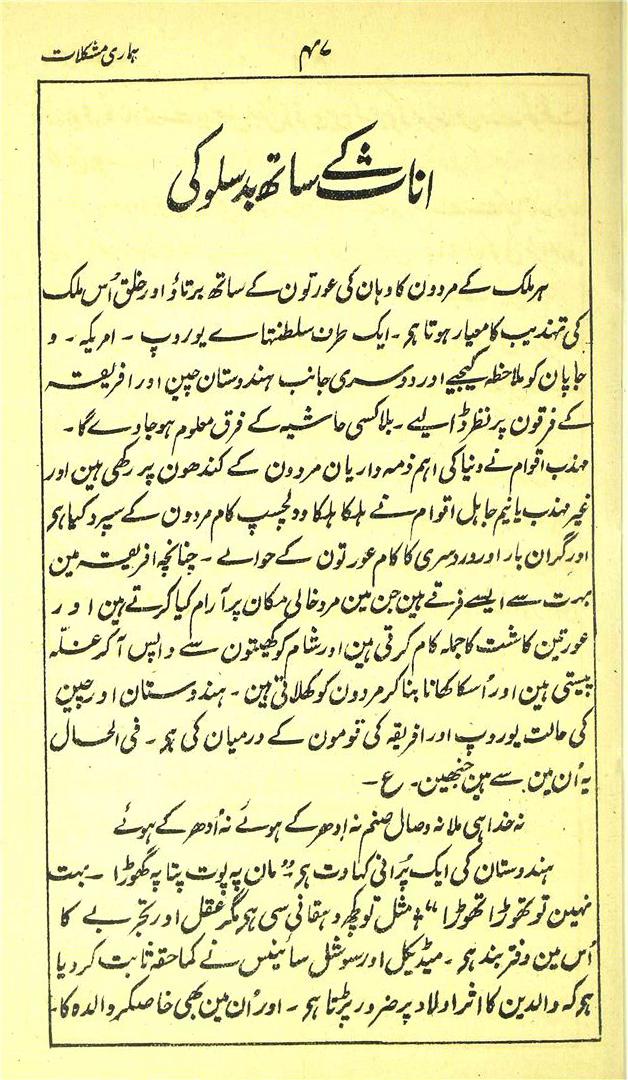 ہماری مشکلات
۴۷
اناث کے ساتھ بدسلوکی
ہر ملک کے مردون کا وہان کی عورتون کے ساتھ برتاؤ اور خلق اُس ملک
کی تہذیب کا معیار ہوتا ہی۔ ایک طرف سلطنتہاے یوروپ ۔ امریکہ ۔ و
جاپان کو ملاحظہ کیجیے اور دوسری جانب ہندوستان چین اور افریقہ
کے فرقون پر نظر ڈالیے ۔ بلا کسی حاشیہ کے فرق معلوم ہو جاوے گا ۔
مہذب اقوام نے دنیا کی اہم ذمہ داریان مردون کے کندھون پر رکھی ہین اور
غیر مہذب یا نیم جاہل اقوام نے ہلکا ہلکا و دلچسپ کام مردون کے سپرد کیا ہی
اور گران بار اور دردسری کا کام عورتون کے حوالے ۔ چنانچہ افریقہ مین
بہت سے ایسے فرقے ہین جن مین مرد خالی مکان پر آرام کیا کرتے ہین اور
عورتین کاشت کا جملہ کام کرتی ہین اور شام کو کھیتون سے واپس آکر غلّہ
پیستی ہین اور اُسکا کھانا بنا کر مردون کو کھلاتی ہین ۔ ہندوستان اور چین
کی حالت یوروپ اور افریقہ کی قومون کے درمیان کی ہی ۔ فی الحال
یہ اُن مین سے ہین جنھین۔ ع ۔
نہ خدا ہی ملا نہ وصال صنم نہ اِدھر کے ہوئے نہ اُدھر کے ہوئے
ہندوستان کی ایک پُرانی کہاوت ہی "مان پہ پوت پتا پہ گھوڑا ۔ بہت
نہین تو تھوڑا تھوڑا" مثل تو کچھ دہقانی سی ہی مگر عقل اور تجربے کا
اُس مین دفتر بند ہی ۔ میڈیکل اور سوشل سائینس نے کماحقہ ثابت کر دیا
ہی کہ والدین کا اثر اولاد پر ضرور پڑتا ہی ۔ اور اُن مین بھی خاصکر والدہ کا۔